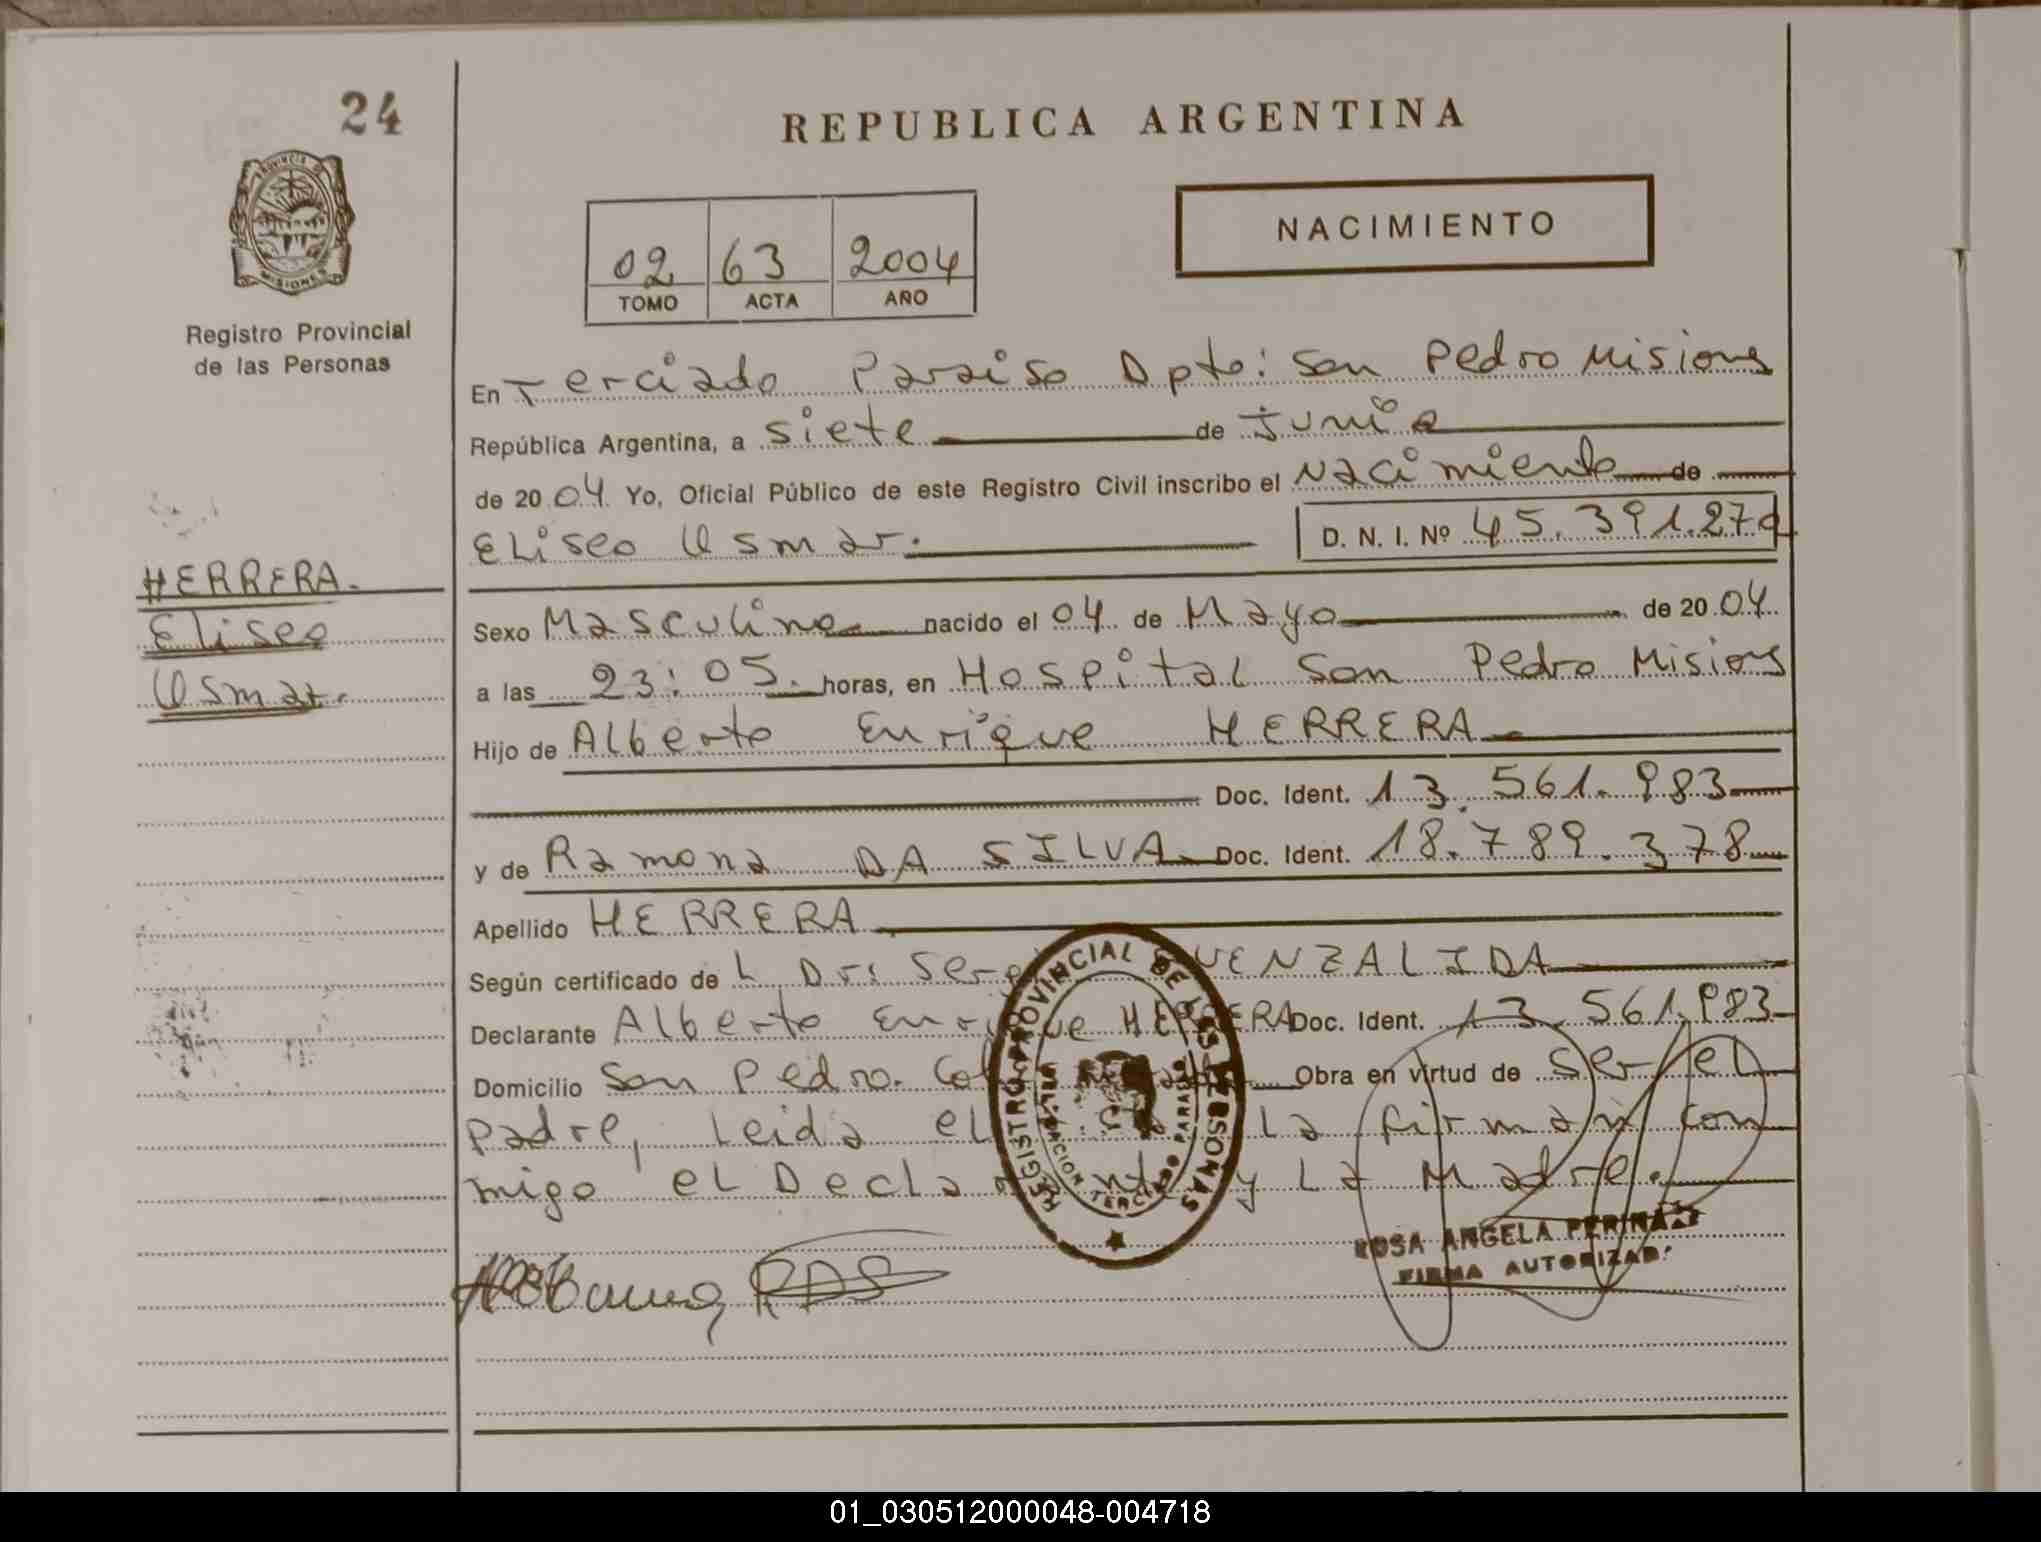 24
REPUBLICA ARGENTINA
PROVINCIA DE
MISIONES
Registro Provincial
de las Personas
NACIMIENTO
02 63 2004
TOMO ACTA AÑO
En Terciado Paraiso Dpto: San Pedro Misiones
República Argentina, a siete de Junio
de 2004 Yo, Oficial Público de este Registro Civil inscribo el Nacimiento de
Eliseo Usmar. D. N. I. Nº 45.391.279
HERRERA.
Eliseo
Usmar.
Sexo Masculino nacido el 04 de Mayo de 2004.
a las 23:05. horas, en Hospital San Pedro Misiones
Hijo de Alberto Enrique HERRERA
Doc. Ident. 13.561.983
y de Ramona DA SILVA Doc. Ident. 18.789.378
Apellido HERRERA
Según certificado de L Dr: VENZALIDA
Declarante Alberto Enrique HERRERA Doc. Ident. 13.561.983
Domicilio San Pedro. Obra en virtud de ser el
padre, Leida el La firman con
migo el Declarante y La Madre.
REGISTRO PROVINCIAL DE LAS PERSONAS
TERCIADO PARAISO
ROSA ANGELA
FIRMA AUTORIZADA
RDS
01_030512000048-004718